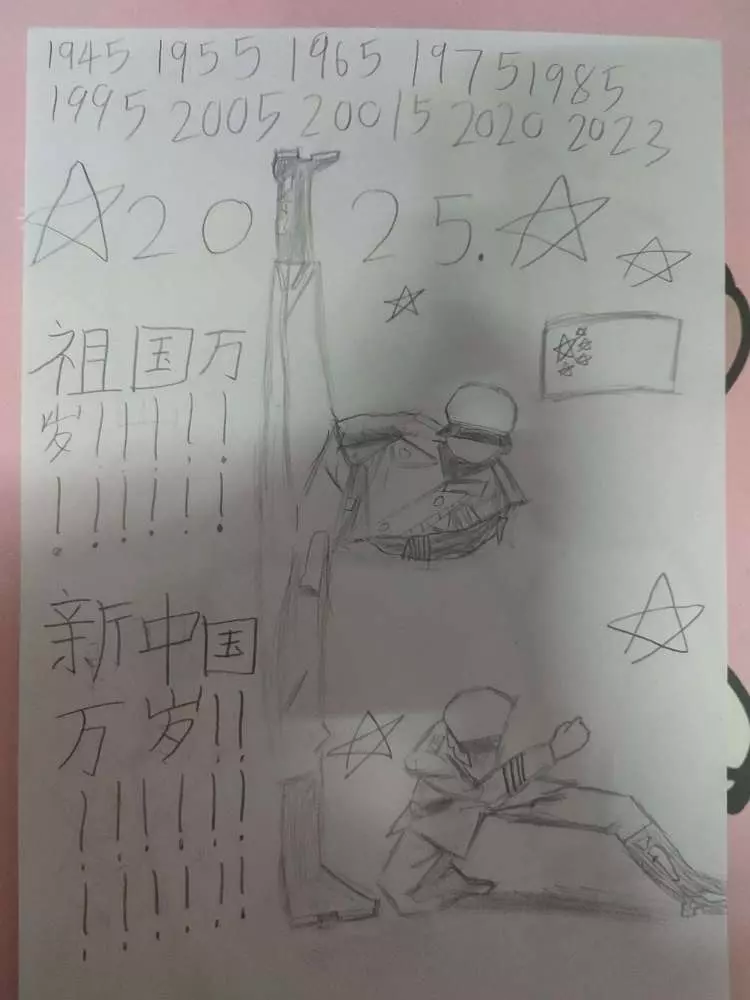 1945 1955 1965 1975 1985
1995 2005 20015 2020 2023
2025.
祖国万
岁!!!!!
!!!!!!
新中国
万岁!!
!!!!!!
!!!!!!